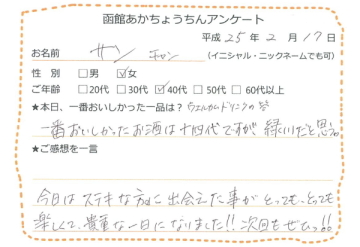 函館あかちょうちんアンケート
平成 25 年 2 月 17 日
お名前 サン キャン (イニシャル・ニックネームでも可)
性 別 □男 ☑女
ご年齢 □20代 □30代 ☑40代 □50代 □60代以上
★本日、一番おいしかった一品は? ウェルカムドリンクの
一番おいしかったお酒は十四代ですが 緑川だと思う。
★ご感想を一言
今日はステキな方々に出会えた事がとっても、とっても
楽しくて、貴重な一日になりました!! 次回もぜひっ!!